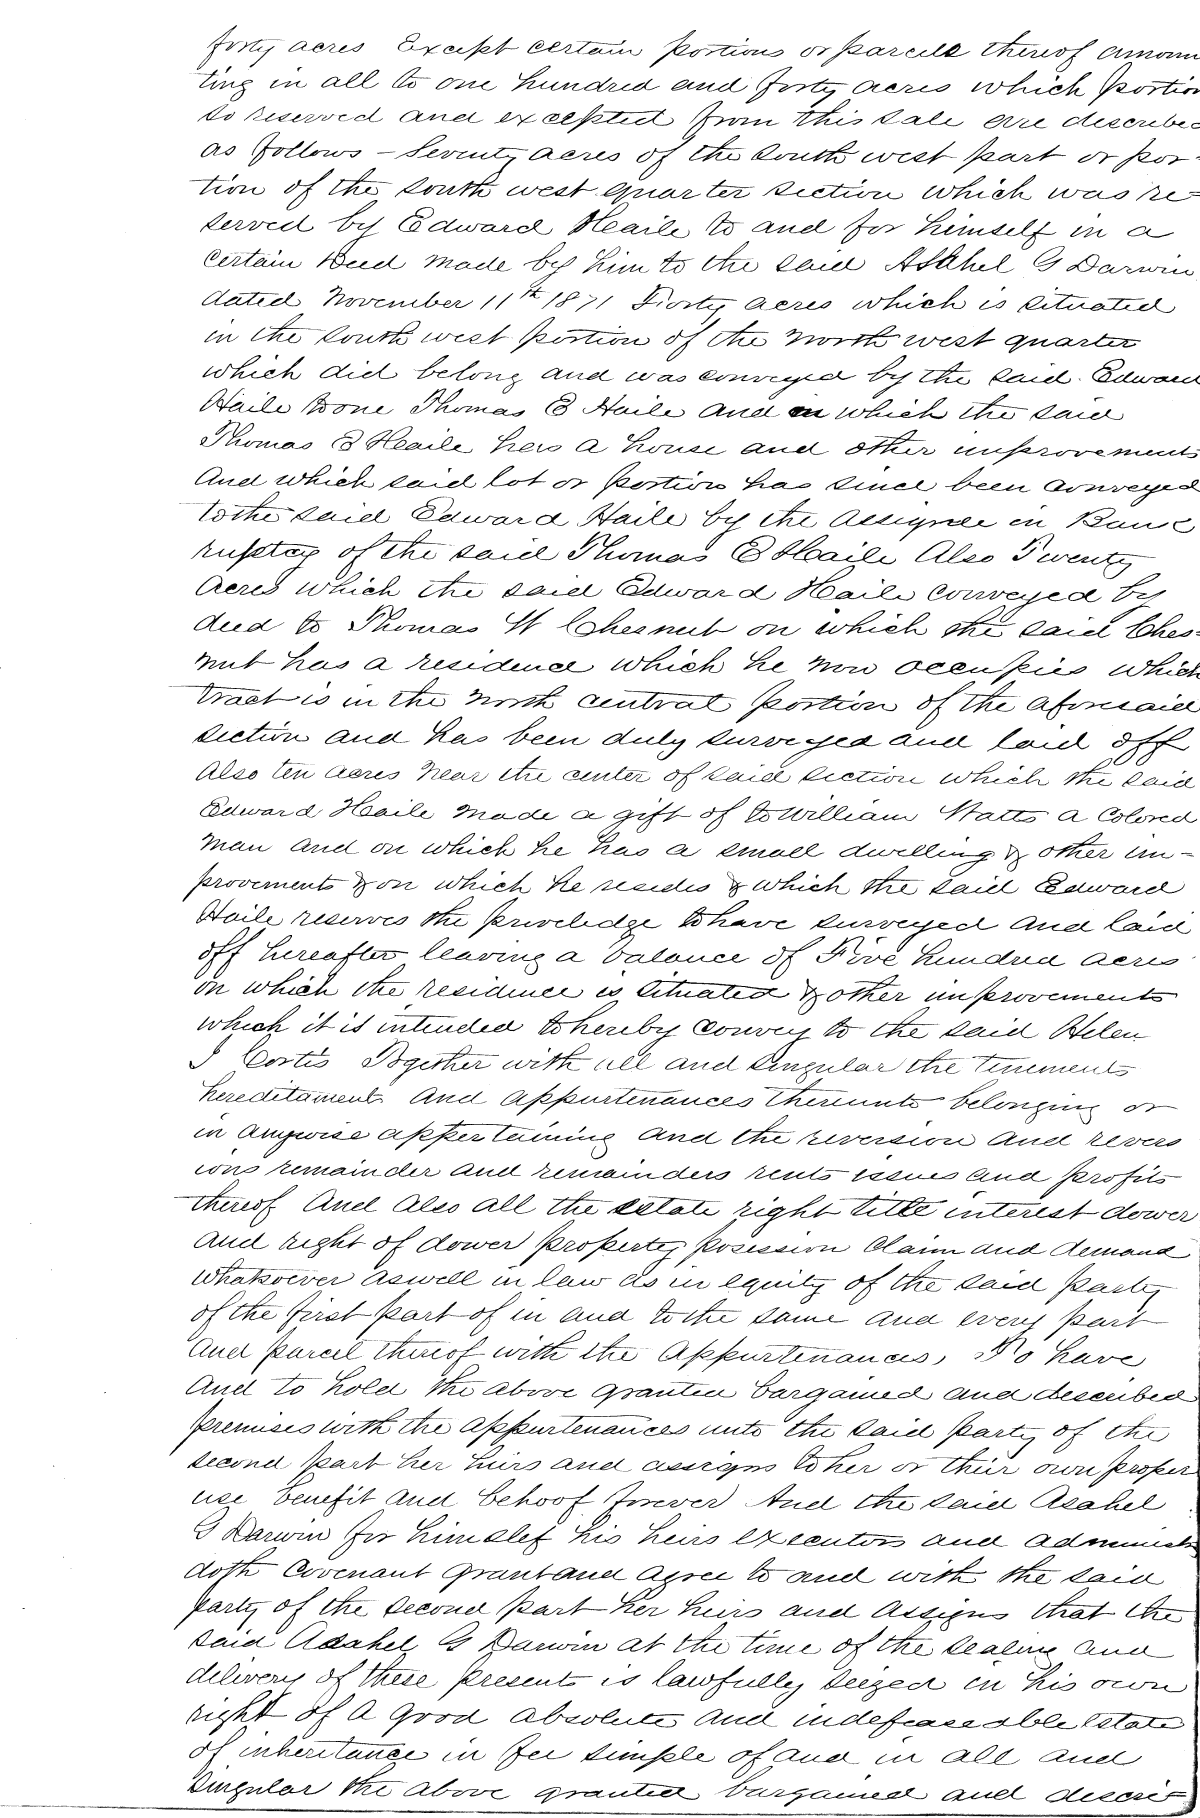 forty acres Except certain portions or parcels thereof amoun
ting in all to one hundred and forty acres which portion
so reserved and excepted from this sale are described
as follows - Seventy acres of the south west part or por-
tion of the south west quarter section which was re=
served by Edward Haile to and for himself in a
certain Deed made by him to the said Asahel G Darwin
dated November 11th 1871 Forty acres which is situated
in the south west portion of the North west quarter
which did belong and was conveyed by the said Edward
Haile to one Thomas E Haile and on which the said
Thomas E Haile has a house and other improvements
And which said lot or portion has since been conveyed
to the said Edward Haile by the Assignee in Banc
ruptcy of the said Thomas E Haile Also Twenty
Acres which the said Edward Haile conveyed by
deed to Thomas W Chesnut on which the said Ches=
nut has a residence which he now occupies which
tract is in the north central portion of the aforesaid
section and has been duly surveyed and laid off
Also ten acres near the center of said section which the said
Edward Haile made a gift of to William Watts a Colored
man and on which he has a small dwelling & other im-
provements & on which he resides & which the said Edward
Haile reserves the priveledge to have surveyed and laid
off hereafter leaving a balance of Five hundred acres
on which the residence is situated & other improvements
which it is intended to hereby convey to the said Helen
I Cortis Together with all and singular the tenements
hereditaments and appurtenances thereunto belonging or
in anywise appertaining and the reversion and revers
ions remainder and remainders rents issues and profits
thereof And also all the estate right title interest dower
and right of dower property posession claim and demand
whatsoever aswell in law as in equity of the said party
of the first part of in and to the same and every part
and parcel thereof with the appurtenances, To have
And to hold the above granted bargained and described
premises with the appurtenances unto the said party of the
second part her heirs and assigns to her or their own proper
use benefit and behoof forever And the said Asahel
G Darwin for himslef his heirs executors and administr
doth covenant grant and agree to and with the said
party of the second part her heirs and assigns that the
said Asahel G Darwin at the time of the sealing and
delivery of these presents is lawfully seized in his own
right of a good absolute and indefeaseable Estate
of inheritance in fee simple of and in all and
singular the above granted bargained and descri